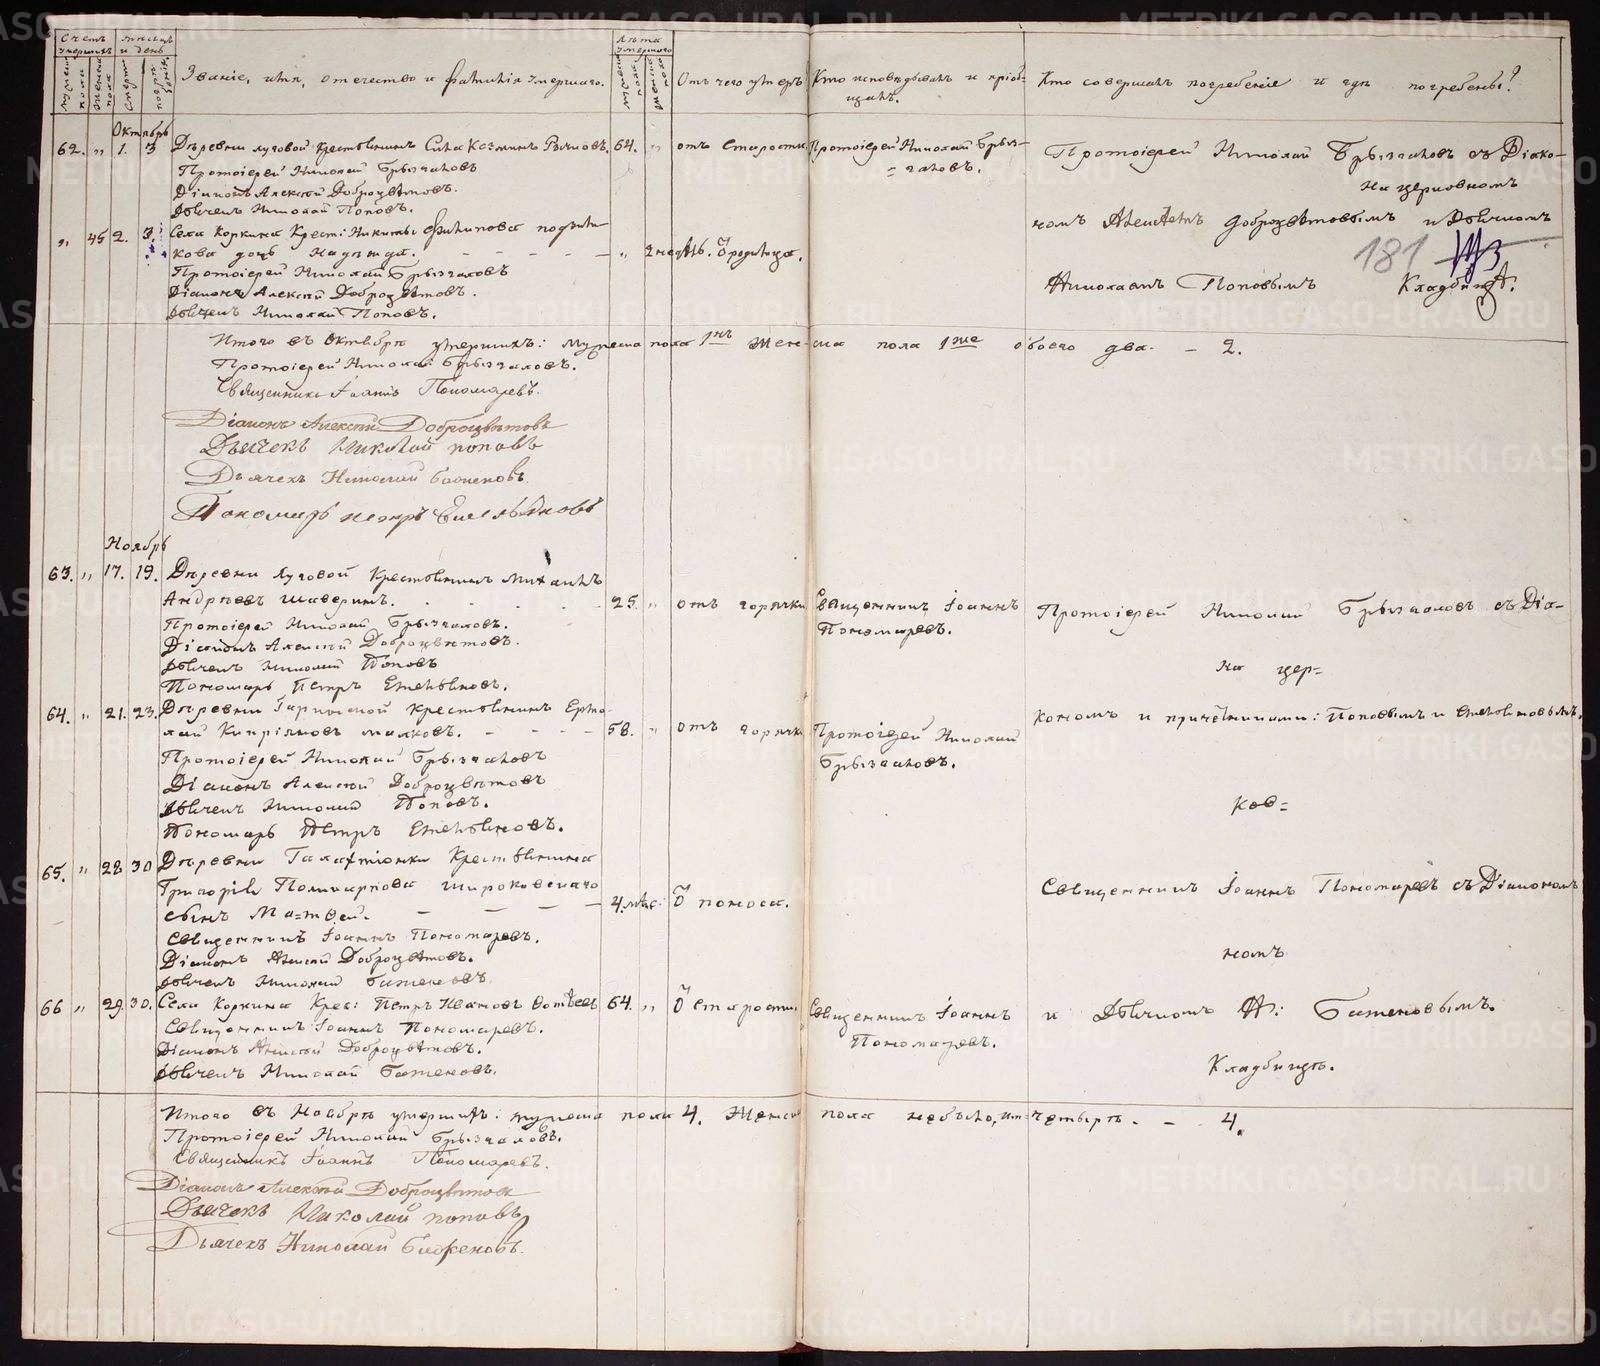 Счетъ умершихъ
Мужеска пола
Женска пола
Мѣсяцъ и день
Смерти
Лѣта умершаго
Мужеска пола
Женска пола
Званіе, имя, отечество и фамилія умершаго.
Отъ чего умеръ
Кто исповѣдывалъ и пріоб-
щалъ.
Кто совершалъ погребеніе и гдѣ погребены?
Октябрь
62. „ 1. 3 Деревни луговой крестьянинъ Сила Козминъ 64. „ отъ старости Протоіерей Николай Брыз-
галовъ.
Протоіерей Николай Брызгаловъ съ Діако-
Протоіерей Николай Брызгаловъ
Діаконъ Алексій Доброцвѣтовъ.
Дьячекъ Николай Поповъ.
На церковномъ
„ 45 2. 3. Села Коркина Крест: Никиты Филипова
кова дочь Надежда. „ 2 нед.
номъ Алексѣемъ Доброцвѣтовымъ и Дьячкомъ
181
Протоіерей Николай Брызгаловъ
Діаконъ Алексій Доброцвѣтовъ.
Дьячекъ Николай Поповъ.
Николаемъ Поповымъ Кладбищѣ.
Итого въ Октябрѣ умершихъ: мужеска пола 1нъ женска пола 1на обоего два. – 2.
Протоіерей Николай Брызгаловъ.
Священникъ Іоаннъ Пономаревъ.
Діаконъ Алексій Доброцвѣтовъ
Дьячекъ Николай Поповъ
Дьячекъ Николай Баженовъ.
Пономарь Петръ Емельяновъ
Ноябрь
63. „ 17. 19. Деревни Луговой Крестьянинъ Михаилъ
Андреевъ Шаверинъ. 25. „ отъ горячки Священникъ Іоаннъ
Пономаревъ.
Протоіерей Николай Брызгаловъ съ Діа-
Протоіерей Николай Брызгаловъ.
Діаконъ Алексій Доброцвѣтовъ.
Дьячекъ Николай Поповъ
Пономарь Петръ Емельяновъ.
На цер=
64. „ 21. 23. Деревни крестьянинъ Ермо-
лай Кипріяновъ Малковъ. 58. „ отъ горячки Протоіерей Николай
Брызгаловъ.
кономъ и причетниками: Поповымъ и Емельяновымъ.
Протоіерей Николай Брызгаловъ
Діаконъ Алексій Доброцвѣтовъ
Дьячекъ Николай Поповъ.
Пономарь Петръ Емельяновъ.
ков=
65. „ 28 30 Деревни Галактіонки Крестьянина
Григорія Поликарпова
сынъ Матвей. 4. мѣс: Ѿ поноса.
Священникъ Іоаннъ Пономаревъ съ Діакономъ
Священникъ Іоаннъ Пономаревъ.
Діаконъ Алексій Доброцвѣтовъ.
Дьячекъ Николай Баженовъ.
номъ
66 „ 29. 30. Села Коркина Крес: Петръ Ивановъ 64. „ Ѿ старости. Священникъ Іоаннъ
Пономаревъ.
и Дьячкомъ Н: Баженовымъ.
Священникъ Іоаннъ Пономаревъ.
Діаконъ Алексій Доброцвѣтовъ.
Дьячекъ Николай Баженовъ.
Кладбищѣ.
Итого въ Ноябрѣ умершихъ: мужеска пола 4. Женска пола небыло, четыре. – 4.
Протоіерей Николай Брызгаловъ.
Священникъ Іоаннъ Пономаревъ.
Діаконъ Алексій Доброцвѣтовъ
Дьячекъ Николай Поповъ
Дьячекъ Николай Баженовъ.
METRIKI.GASO-URAL.RU